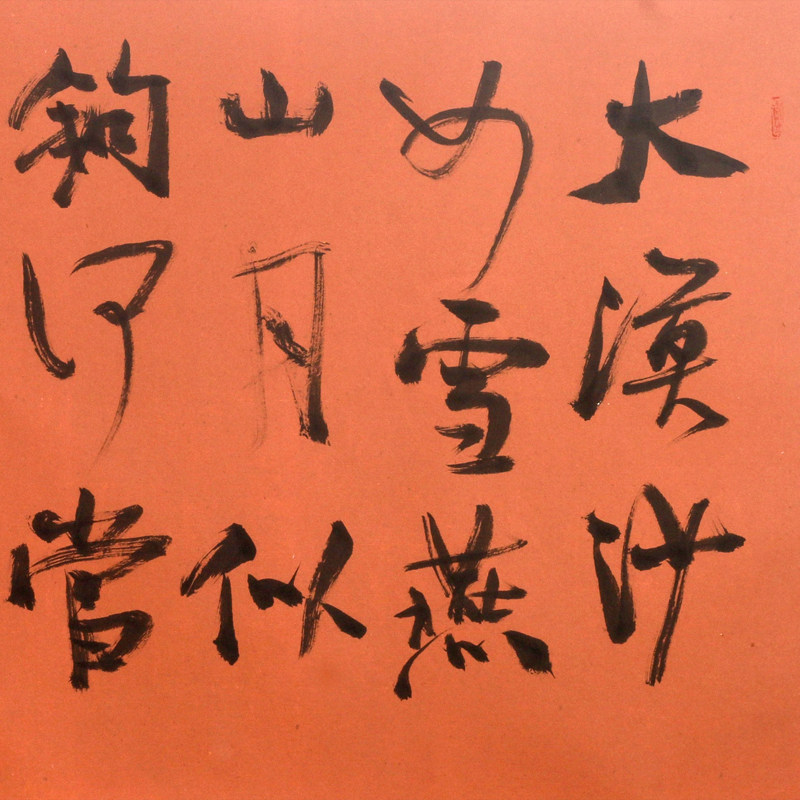 大漠沙
如雪燕
山月似
钩何当